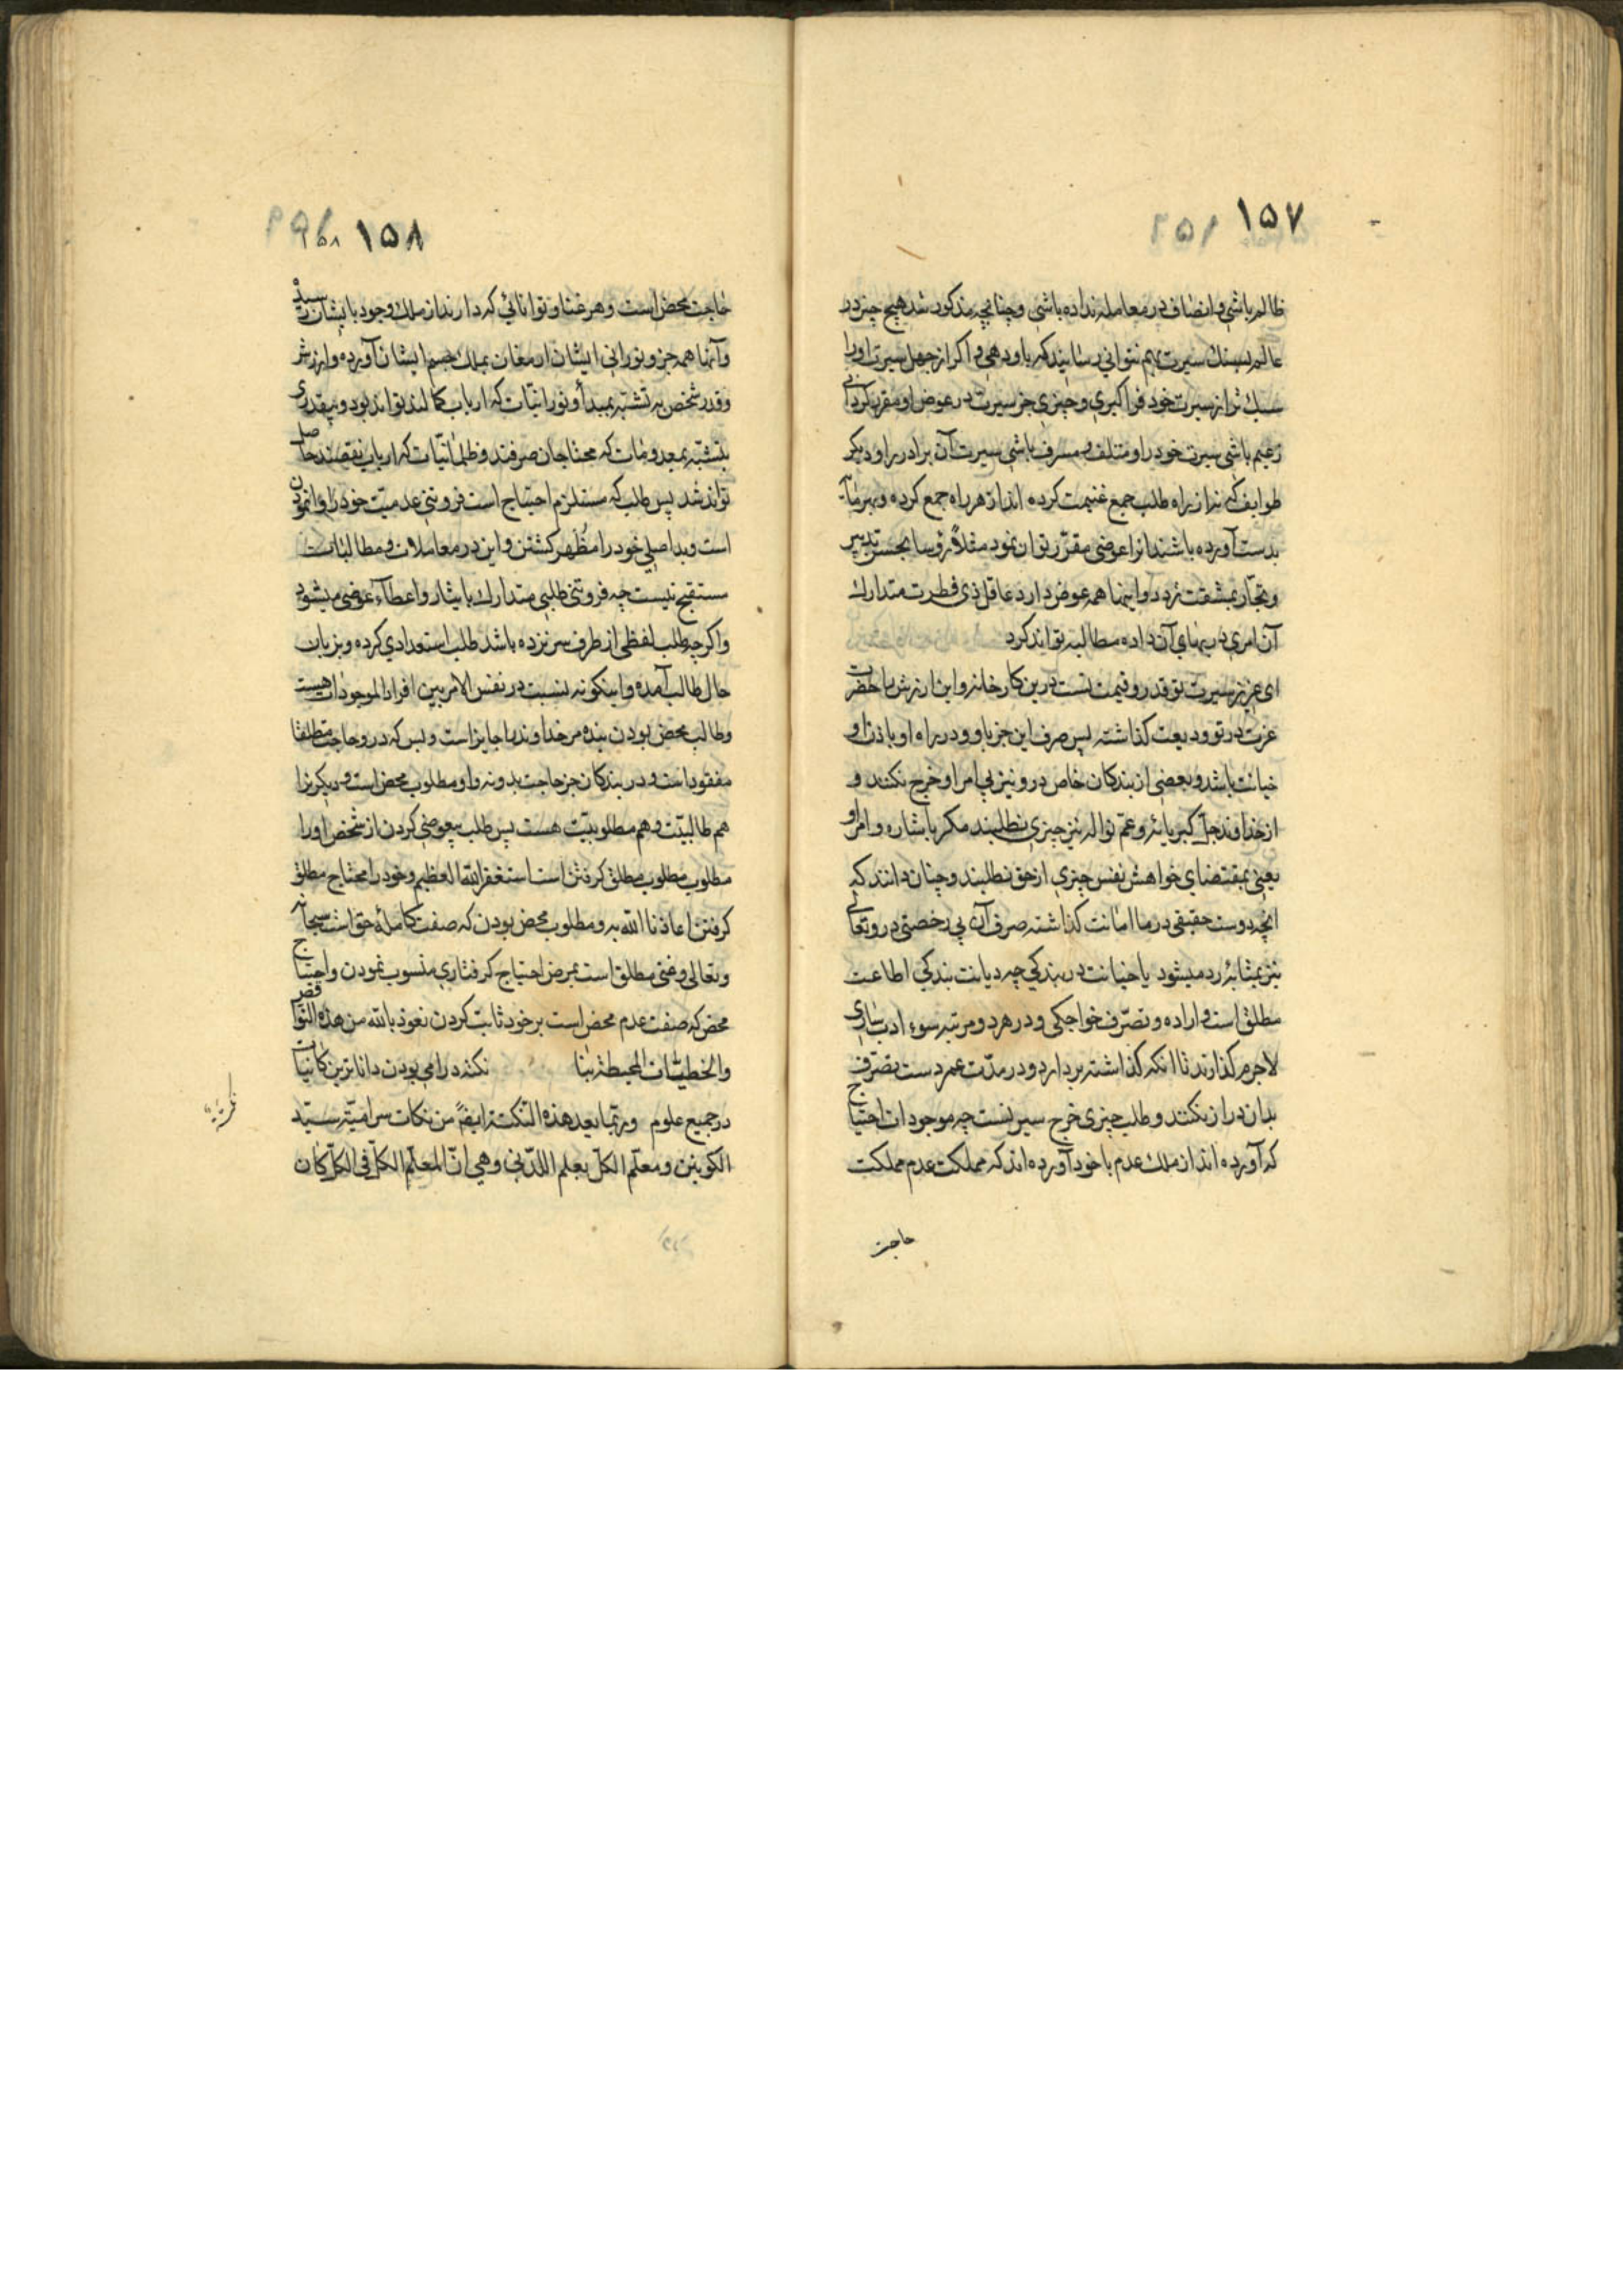 ۱۵۷
ظالم باشی و انصاف در معامله نداده باشی و چنانچه مذکور شد هیچ چیز در
عالم بسنك سیرت بهم نتوانی رسانید که باو دهی و اکر از جهل سیرت او را
سبك تر از سیرت خود فرا کیری و چیزی جز سیرت در عوض او مقرر کردانی
زعیم باشی سیرت خود را و متلف و مسرف باشی سیرت آن برادر را و دیکر
طوایف که نه از راه طلب جمع غنیمت کرده اند از هر راه جمع کرده و بهر
بدست آورده باشند انرا عوضی مقرر توان نمود مثلا رؤسا بحسن تدبیر
و تجار بمشقت تردد و اینها همه عوض دارد عاقل ذی فطرت متدارك
آن امری در بهای آن داده مطالبه تواند کرد
ای عزیز سیرت تو قدر و قیمت تست درین کارخانه و این ارزش را حضرت
عزت در تو ودیعت کذاشته پس صرف این جز باو و در راه او باذن او
خیانت باشد و بعضی از بندکان خاص درو نیز بی امر او خرج نکنند و
از خداوند جل کبریائه و عم نواله نیز چیزی نطلبند مکر باشاره و امر او
یعنی بمقتضای خواهش نفس چیزی از حق نطلبند و چنان دانند که
انچه دوست حقیقی در ما امانت کذاشته صرف آن بی رخصتی درو تعالی
نیز بمثابه رد میشود یا خیانت در بندکی چه دیانت بندکی اطاعت
مطلق است و اراده و تصرف خواجکی و در هر دو مرتبه سوء ادب
لاجرم کذارند تا انکه کذاشته بردارد و در مدت عمر دست تصرف
بدان دراز نکنند و طلب چیزی خرج سیرتست چه موجودات احتیاج
که آورده اند از ملك عدم با خود آورده اند که مملکت عدم مملکت
حاجت
۱۵۸
حاجت محض است و هر غنا و توانائی که دارند از ملك وجود بایشان رسیده
و آنها همه جزو نورانی ایشان ارمغان بملك جسم ایشان آورده و ارزش
و قدر شخص به تشبه بمبدأ و نورانیات که ارباب کمالند تواند بود و بیقدری
بتشبه بمعدومات که محتاجان صرفند و ظلمانیات که ارباب نقصند حاصل
تواند شد پس طلب که مستلزم احتیاج است فروتنی عدمیت خود را وانمودن
است و بد اصلی خود را مظهر کشتن و این در معاملات و مطالبات
مستقبح نیست چه فروتنی طلبی متدارك بایثار و اعطآء عوضی میشود
و اکرچه طلب لفظی از طرف سر نزده باشد طلب استعدادی کرده و بزبان
حال طالب آمده و اینکونه نسبت در نفس الامر بین افراد الموجودات هست
و طالب محض بودن بنده مر خداوند را جایز است و بس که درو حاجت مطلقا
مفقود است و در بندکان جز حاجت بدو نه و او مطلوب محض است و دیکر نرا
هم طالبیت و هم مطلوبیت هست پس طلب بیعوضی کردن از شخص او را
مطلوب مطلوب مطلق کرفتن است استغفر الله العظیم و خود را محتاج مطلق
کرفتن اعاذنا الله به و مطلوب محض بودن که صفت کامله حق است سبحانه
و تعالی و غنی مطلق است بمرض احتیاج کرفتاری منسوب نمودن و احتیاج
محض که صفت عدم محض است بر خود ثابت کردن نعوذ بالله من هذه النواقص
و الخطیئات المحیطة بنا نکته در امی بودن داناترین کائنات
در جمیع علوم و ربما بعد هذه النکتة ایضا من نکات سر امیة سید
الکونین و معلم الکل بعلم اللدنی و هی ان المعلم الکل فی الکل کان